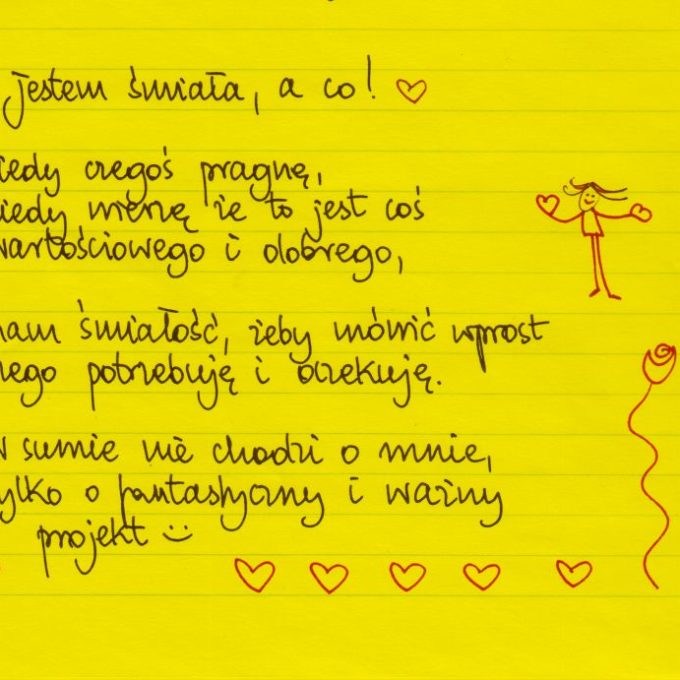 jestem śmiała, a co!
iedy czegoś pragnę,
iedy wierzę że to jest coś
wartościowego i dobrego,
mam śmiałość, żeby mówić wprost
zego potrzebuję i oczekuję.
W sumie nie chodzi o mnie,
ylko o fantastyczny i ważny
projekt